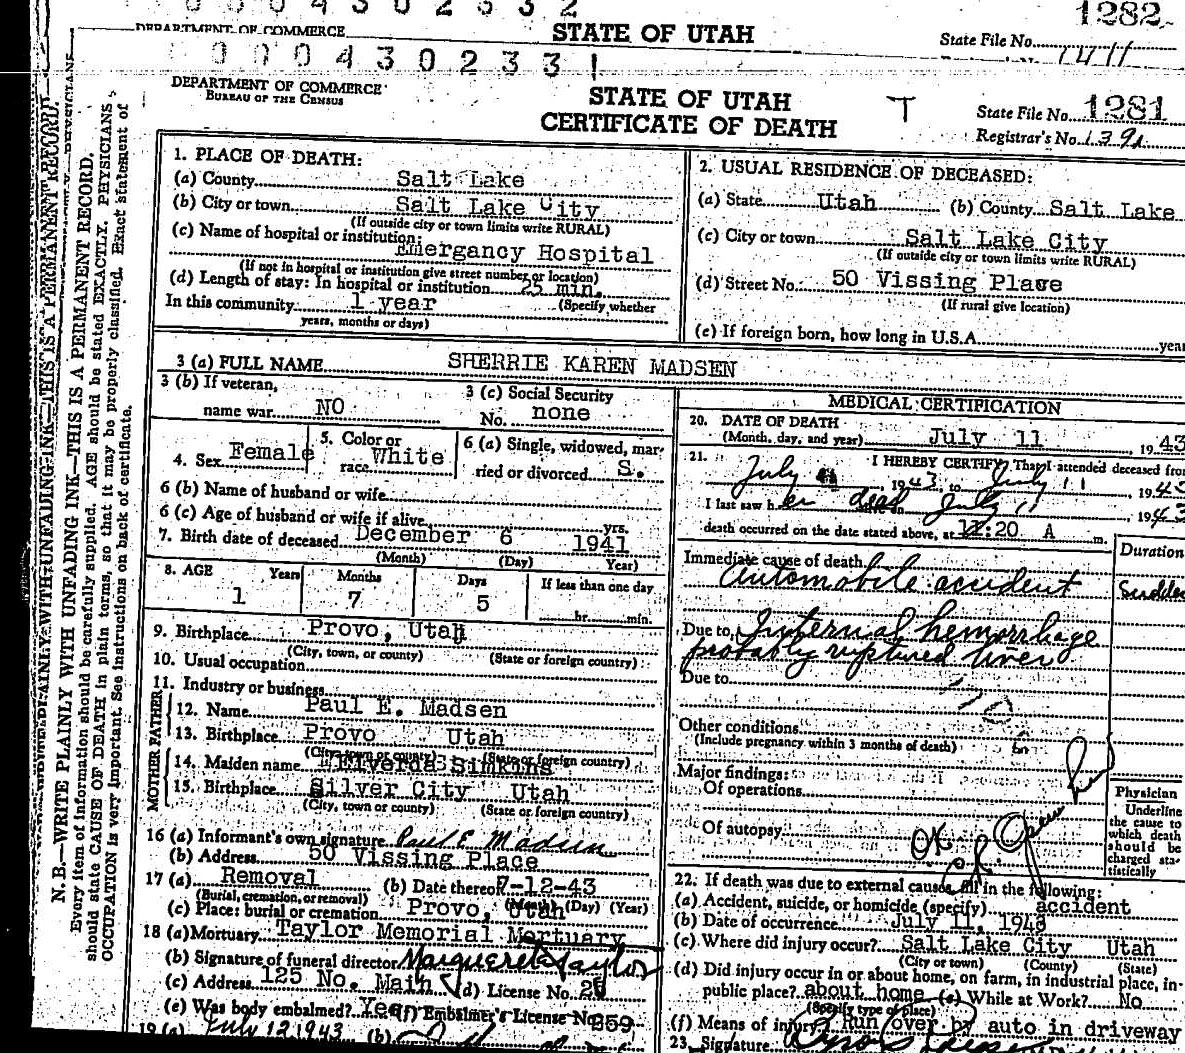 0 0 0 4 3 0 2 3 3 2
1282
DEPARTMENT OF COMMERCE
STATE OF UTAH
State File No.
0 0 0 4 3 0 2 3 3 1
DEPARTMENT OF COMMERCE
BUREAU OF THE CENSUS
STATE OF UTAH
CERTIFICATE OF DEATH
T
State File No. 1281
Registrar's No. 1391
N. B.—WRITE PLAINLY WITH UNFADING INK—THIS IS A PERMANENT RECORD.
Every item of information should be carefully supplied. AGE should be stated EXACTLY. PHYSICIANS
should state CAUSE OF DEATH in plain terms, so that it may be properly classified. Exact statement of
OCCUPATION is very important. See instructions on back of certificate.
1. PLACE OF DEATH:
(a) County Salt Lake
(b) City or town Salt Lake City
(If outside city or town limits write RURAL)
(c) Name of hospital or institution:
Emergancy Hospital
(If not in hospital or institution give street number or location)
(d) Length of stay: In hospital or institution 25 min.
In this community 1 year (Specify whether
years, months or days)
2. USUAL RESIDENCE OF DECEASED:
(a) State Utah (b) County Salt Lake
(c) City or town Salt Lake City
(If outside city or town limits write RURAL)
(d) Street No. 50 Vissing Place
(If rural give location)
(e) If foreign born, how long in U.S.A. year
3 (a) FULL NAME SHERRIE KAREN MADSEN
3 (b) If veteran,
name war NO
3 (c) Social Security
No. none
4. Sex Female
5. Color or
race White
6 (a) Single, widowed, mar-
ried or divorced S.
6 (b) Name of husband or wife
6 (c) Age of husband or wife if alive yrs.
7. Birth date of deceased December 6 1941
(Month) (Day) Year)
8. AGE Years Months Days If less than one day
1 7 5 hr. min.
9. Birthplace Provo, Utah
(City, town, or county) (State or foreign country)
10. Usual occupation
11. Industry or business
FATHER
12. Name Paul E. Madsen
13. Birthplace Provo Utah
(City, town or county) (State or foreign country)
MOTHER
14. Maiden name Elverda Simkins
15. Birthplace Silver City Utah
(City, town or county) (State or foreign country)
16 (a) Informant's own signature Paul E Madsen
(b) Address 50 Vissing Place
17 (a) Removal (b) Date thereof 7-12-43
(Burial, cremation, or removal) (Month) (Day) (Year)
(c) Place: burial or cremation Provo, Utah
18 (a) Mortuary Taylor Memorial Mortuary
(b) Signature of funeral director Marguerete Taylor
(c) Address 125 No. Main (d) License No. 26
(e) Was body embalmed? Yes (f) Embalmer's License No. 359
19 (a) July 12 1943 (b)
MEDICAL CERTIFICATION
20. DATE OF DEATH
(Month, day, and year) July 11 , 1943
21. I HEREBY CERTIFY, That I attended deceased from
July 11 , 1943, to July 11 , 1943
I last saw her dead on July 11 , 1943
death occurred on the date stated above, at 12:20 A m.
Duration
Immediate cause of death
Automobile accident Sudden
Due to Internal hemorrhage
probably ruptured liver
Due to
170
6
Other conditions
(Include pregnancy within 3 months of death)
Major findings:
Of operations
Of autopsy
OK
Physician
Underline
the cause to
which death
should be
charged sta-
tistically
22. If death was due to external causes, fill in the following:
(a) Accident, suicide, or homicide (specify) accident
(b) Date of occurrence July 11, 1943
(c) Where did injury occur? Salt Lake City Utah
(City or town) (County) (State)
(d) Did injury occur in or about home, on farm, in industrial place, in
public place? about home (e) While at Work? No
(Specify type of place)
(f) Means of injury Run over by auto in driveway
23. Signature